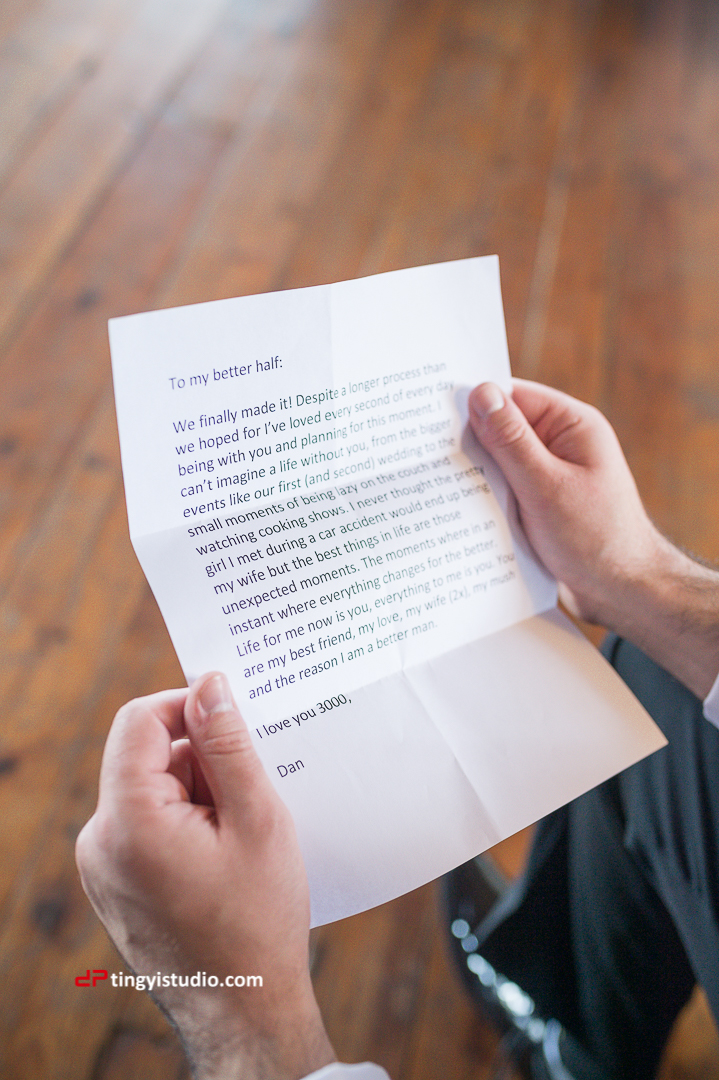 To my better half:
We finally made it! Despite a longer process than
we hoped for I've loved every second of every day
being with you and planning for this moment. I
can't imagine a life without you, from the bigger
events like our first (and second) wedding to the
small moments of being lazy on the couch and
watching cooking shows. I never thought the pretty
girl I met during a car accident would end up being
my wife but the best things in life are those
unexpected moments. The moments where in an
instant where everything changes for the better.
Life for me now is you, everything to me is you. You
are my best friend, my love, my wife (2x), my mush
and the reason I am a better man.
I love you 3000,
Dan
dP tingyistudio.com